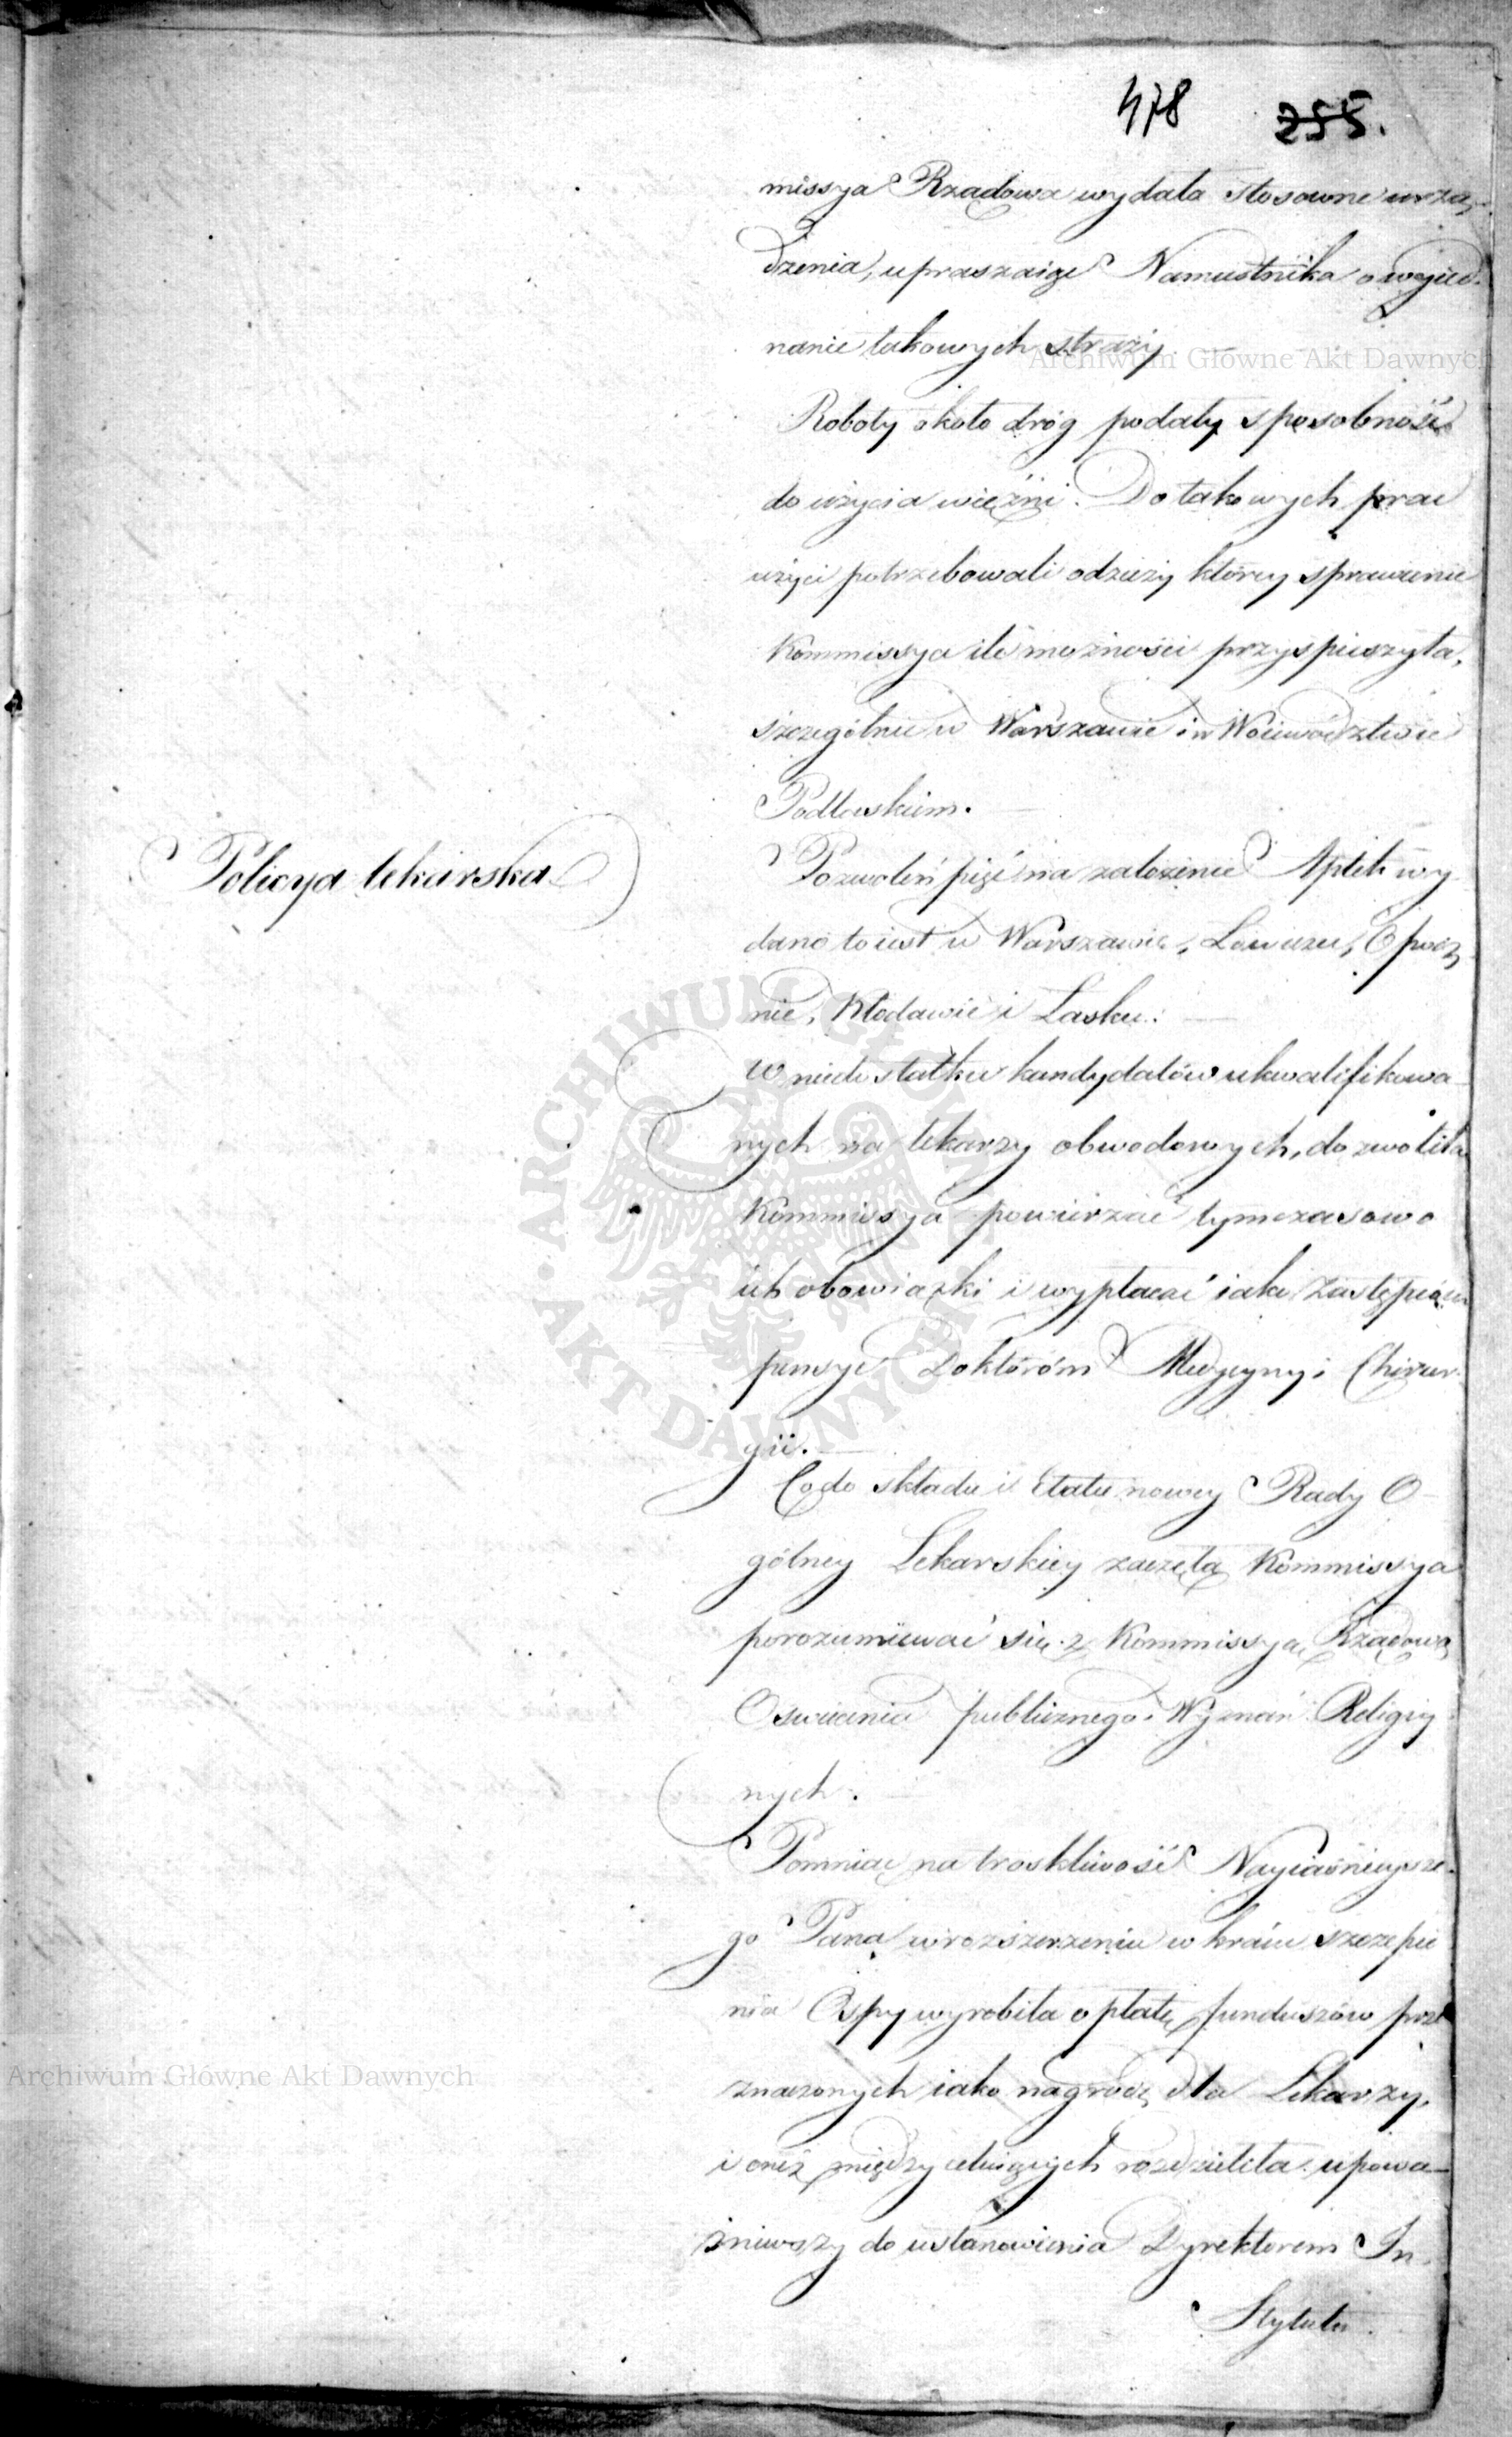 478 255.
missya Rządowa wydała stosowne urzą-
dzenia, upraszaiąc Namiestnika o wyied-
nanie takowych straży.
Archiwum Główne Akt Dawnych
Roboty około dróg podały sposobność
do użycia więźni. Do takowych prac
użyci potrzebowali odzieży którey sprawienie
Kommissya ile możności przyspieszyła,
szczególnie w Warszawie i w Woiewództwie
Podlaskim.
Policya lekarska
Pozwoleń pięć na założenie Aptek wy
dano to iest w Warszawie, Łowiczu, Opocz-
nie, Kłodawie i Łasku.
W niedostatku kandydatów ukwalifikowa-
nych na lekarzy obwodowych, dozwoliła
Kommissya powierzać tymczasowo
ich obowiązki i wypłacać iako zastępcom
pensye Doktorom Medycyny i Chirur-
gii.
Co do składu i Etatu nowey Rady O-
gólney Lekarskiey zaczęła Kommissya
porozumiewać się z Kommissyą Rządową
Oswiecenia publicznego i Wyznań Religiy
nych.
Pomniąc na troskliwość Nayiaśnieysze-
go Pana w rozszerzeniu w kraiu szczepie
nia Ospy wyrobiła opłatę funduszów prze
znaczonych iako nagrodę dla Lekarzy,
i oneż między celuiących rozdzieliła upowa-
żniwszy do ustanowienia Dyrektorem In-
stytutu
Archiwum Główne Akt Dawnych
ARCHIWUM GŁÓWNE AKT DAWNYCH